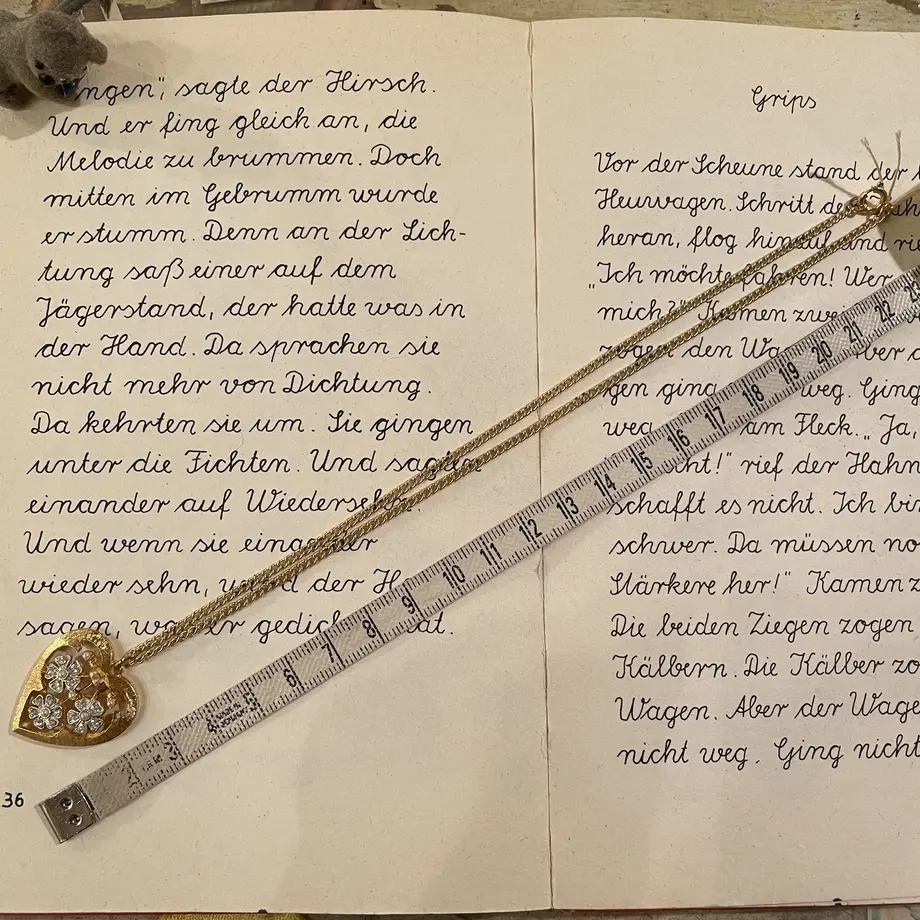 ngen", sagte der Hirsch.
Und er fing gleich an, die
Melodie zu brummen. Doch
mitten im Gebrumm wurde
er stumm. Denn an der Lich-
tung saß einer auf dem
Jägerstand, der hatte was in
der Hand. Da sprachen sie
nicht mehr von Dichtung.
Da kehrten sie um. Sie gingen
unter die Fichten. Und sagten
einander auf Wiedersehn.
Und wenn sie einander
wieder sehn, der
sagen, er
36
Grips
Vor der Scheune stand der
Heuwagen. Schritt der
heran, flog hinauf und rief
„Ich möchte fahren! Wer
mich?" Kamen zwei
zogen den aber
gen ging weg. Ging
weg am Fleck. „Ja,
nicht!" rief der Hahn
schafft es nicht. Ich bin
schwer. Da müssen
Stärkere her!" Kamen
Die beiden Ziegen zogen
Kälbern. Die Kälber
Wagen. Aber der
nicht weg. Ging nicht
3
6 7 8 9 10 11 12 13 14 15 16 17 18 19 20 21 22